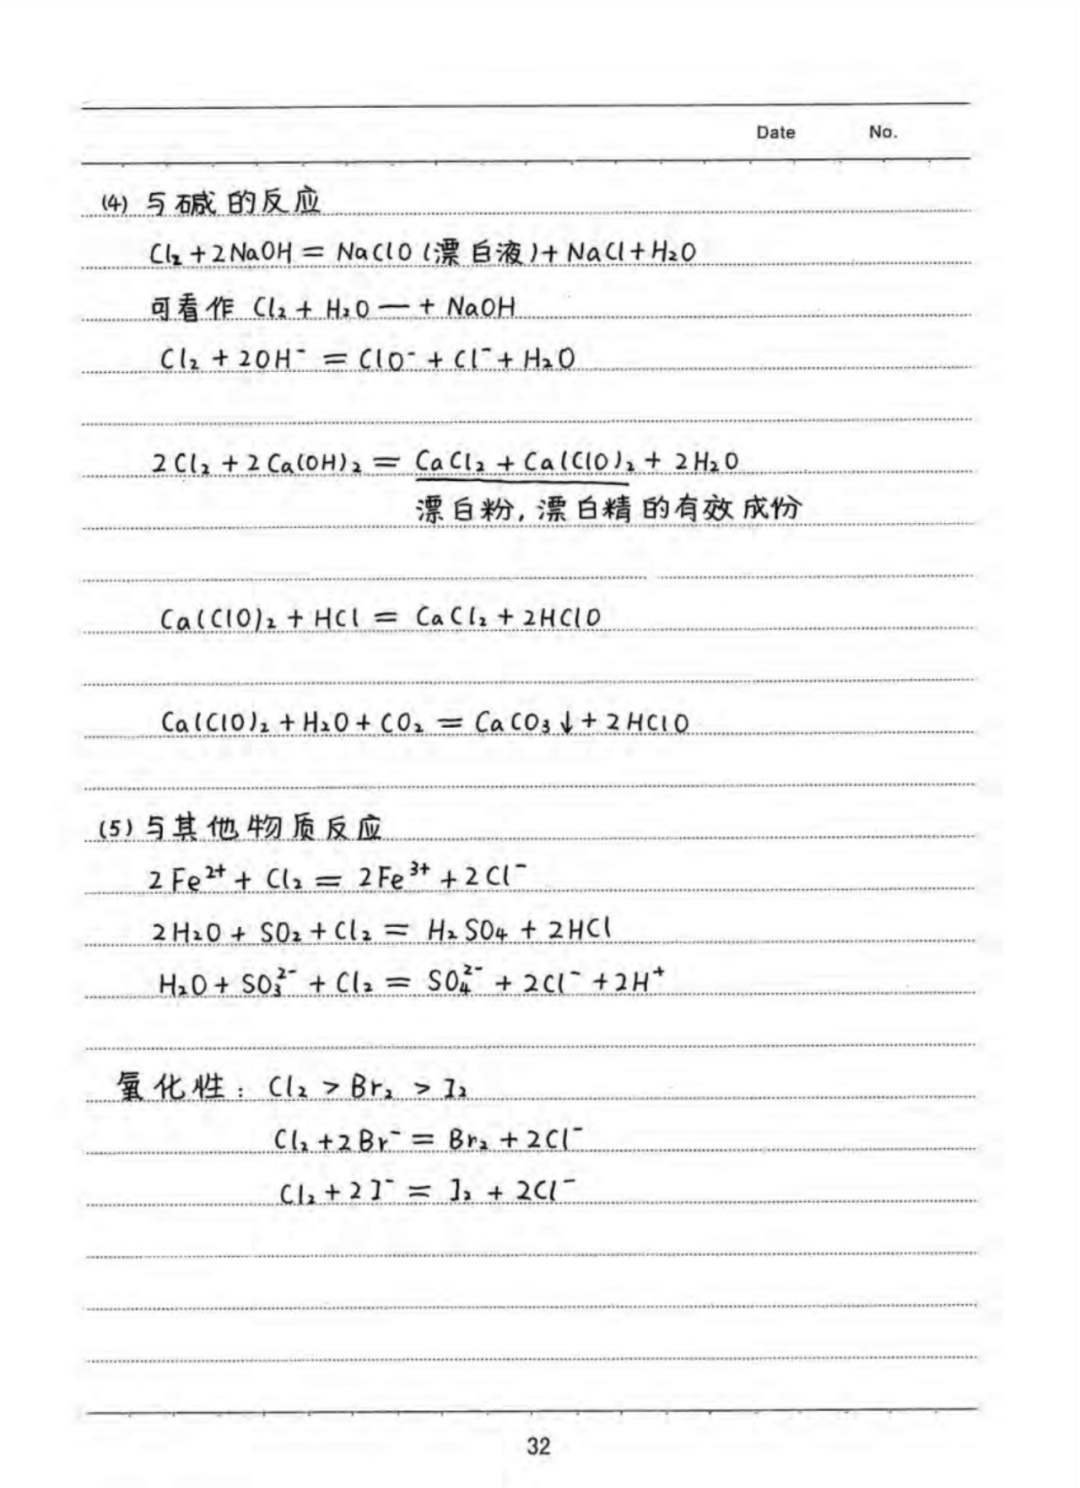 Date No.
(4) 与碱的反应
Cl₂ + 2NaOH = NaClO (漂白液) + NaCl + H₂O
可看作 Cl₂ + H₂O — + NaOH
Cl₂ + 2OH⁻ = ClO⁻ + Cl⁻ + H₂O
2Cl₂ + 2Ca(OH)₂ = CaCl₂ + Ca(ClO)₂ + 2H₂O
漂白粉, 漂白精的有效成份
Ca(ClO)₂ + HCl = CaCl₂ + 2HClO
Ca(ClO)₂ + H₂O + CO₂ = CaCO₃↓ + 2HClO
(5) 与其他物质反应
2Fe²⁺ + Cl₂ = 2Fe³⁺ + 2Cl⁻
2H₂O + SO₂ + Cl₂ = H₂SO₄ + 2HCl
H₂O + SO₃²⁻ + Cl₂ = SO₄²⁻ + 2Cl⁻ + 2H⁺
氧化性: Cl₂ > Br₂ > I₂
Cl₂ + 2Br⁻ = Br₂ + 2Cl⁻
Cl₂ + 2I⁻ = I₂ + 2Cl⁻
32